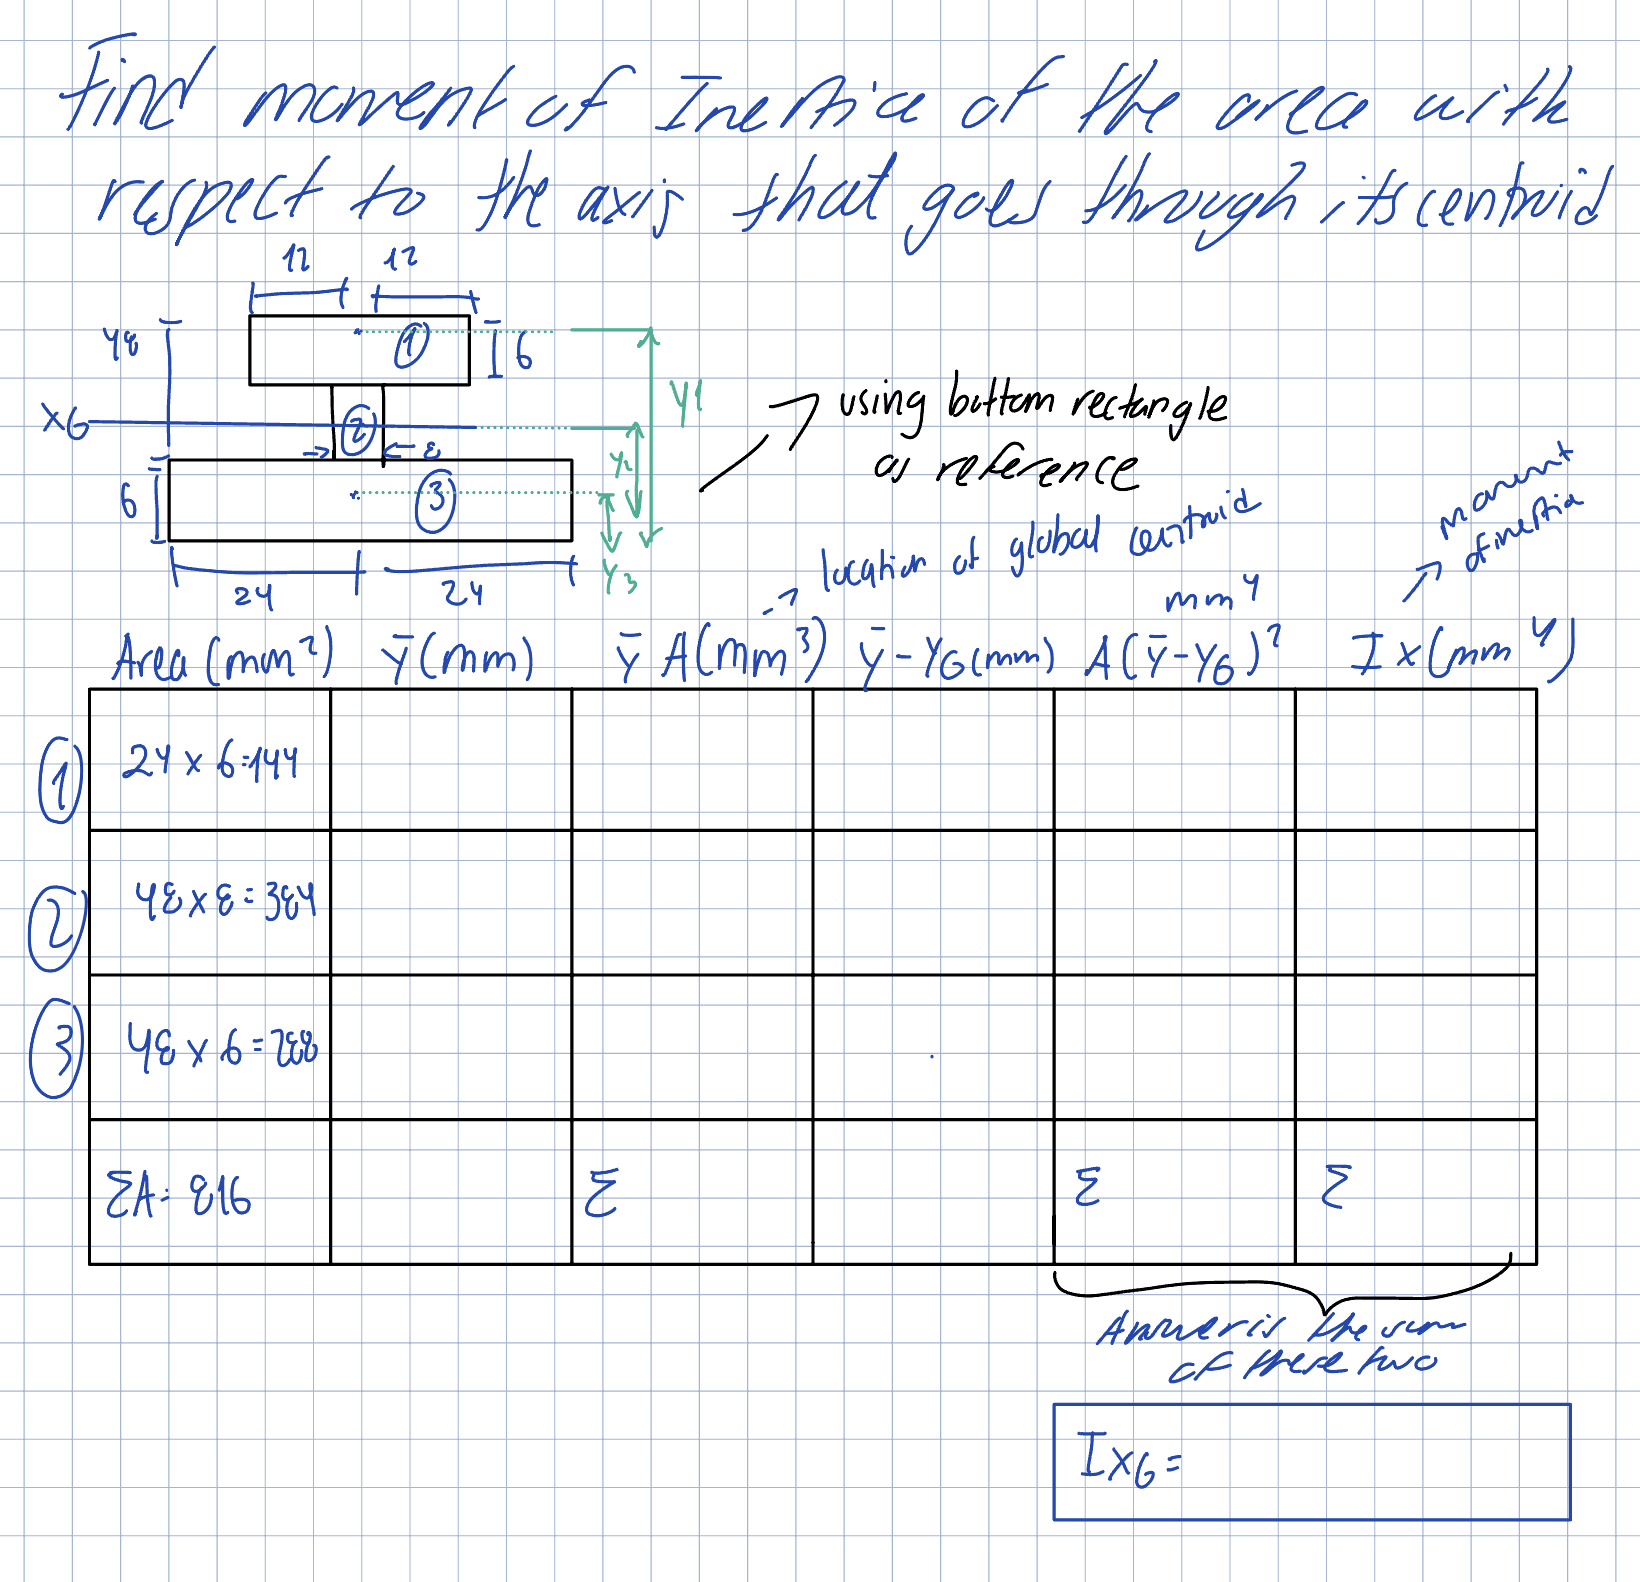 Find moment of Inertia of the area with
respect to the axis that goes through its centroid
12 12
48
1
6
y1
XG
2
8
y2
using bottom rectangle
as reference
6
3
y3
24 24
location of global centroid
moment
of inertia
mm⁴
Area (mm²) ȳ (mm) ȳ A(mm³) ȳ - yG (mm) A(ȳ-yG)² Ix (mm⁴)
1 24 x 6=144
2 48 x 8 = 384
3 48 x 6 = 288
ΣA = 816 Σ Σ Σ
Answer is the sum
of these two
IxG =